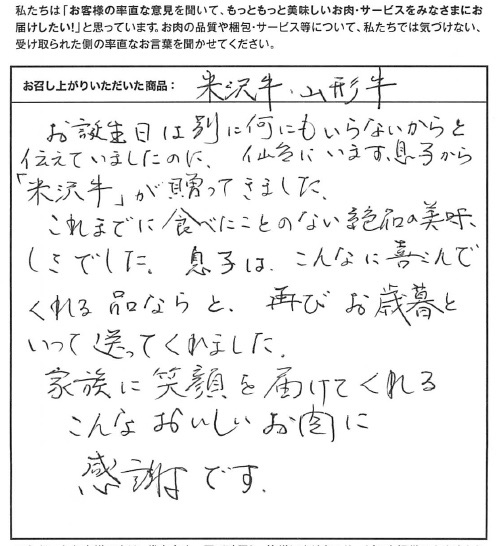 私たちは「お客様の率直な意見を聞いて、もっともっと美味しいお肉・サービスをみなさまにお
届けしたい!」と思っています。お肉の品質や梱包・サービス等について、私たちでは気づけない、
受け取られた側の率直なお言葉を聞かせてください。
お召し上がりいただいた商品: 米沢牛・山形牛
お誕生日は別に何にもいらないからと
伝えていましたのに、仙台にいます、息子から
「米沢牛」が贈ってきました。
これまでに食べたことのない絶品の美味
しさでした。息子は、こんなに喜こんで
くれる品ならと、再びお歳暮と
いって送ってくれました。
家族に笑顔を届けてくれる
こんなおいしいお肉に
感謝です。